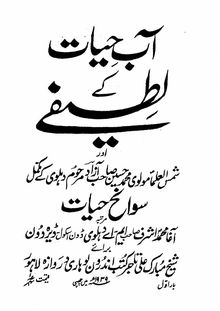 آبِ حیات
کے
لطیفے
اور
شمس العلما مولوی محمد حسین صاحب آزاد مرحوم دہلوی کے مکمل
سوانح حیات
مرتبہ
آغا محمد اشرف صاحب ایم اے دہلوی دُون اسکول ڈیرہ دُون
برائے
شیخ مبارک علی تاجر کتب اندرون لوہاری دروازہ لاہور
بار اول
قیمت